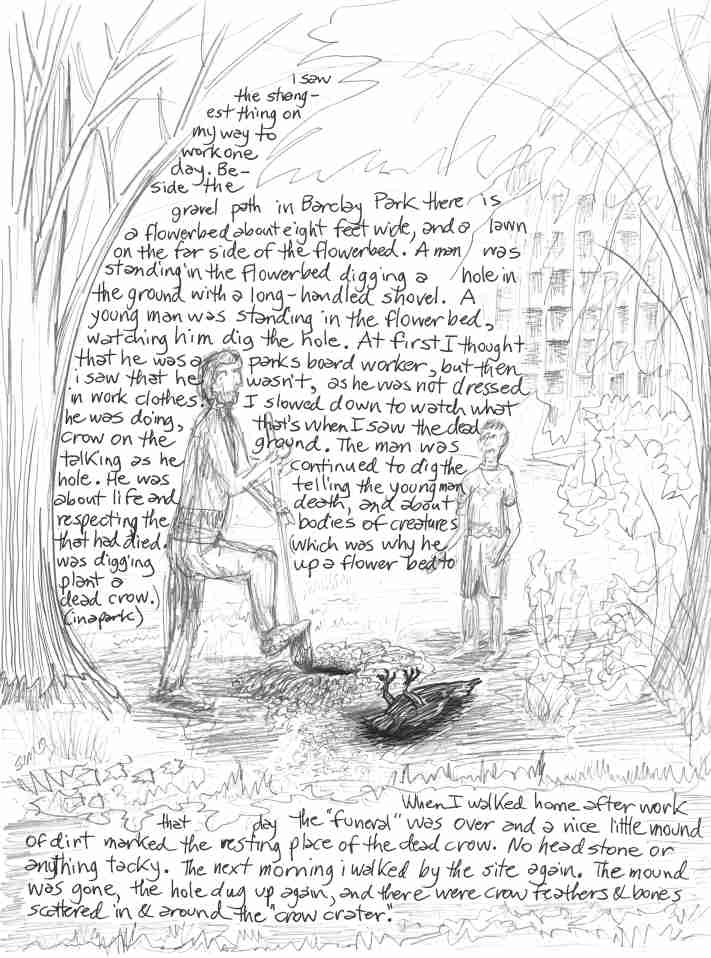 i saw
the strang-
est thing on
my way to
work one
day. Be-
side the
gravel path in Barclay Park there is
a flowerbed about eight feet wide, and a lawn
on the far side of the flowerbed. A man was
standing in the flowerbed digging a hole in
the ground with a long-handled shovel. A
young man was standing in the flowerbed,
watching him dig the hole. At first I thought
that he was a parks board worker, but then
i saw that he wasn't, as he was not dressed
in work clothes. I slowed down to watch what
he was doing, that's when I saw the dead
crow on the ground. The man was
talking as he continued to dig the
hole. He was telling the young man
about life and death, and about
respecting the bodies of creatures
that had died. (which was why he
was digging up a flower bed to
plant a
dead crow.)
(in a park)
When I walked home after work
that day the "funeral" was over and a nice little mound
of dirt marked the resting place of the dead crow. No headstone or
anything tacky. The next morning i walked by the site again. The mound
was gone, the hole dug up again, and there were crow feathers & bones
scattered in & around the "crow crater".